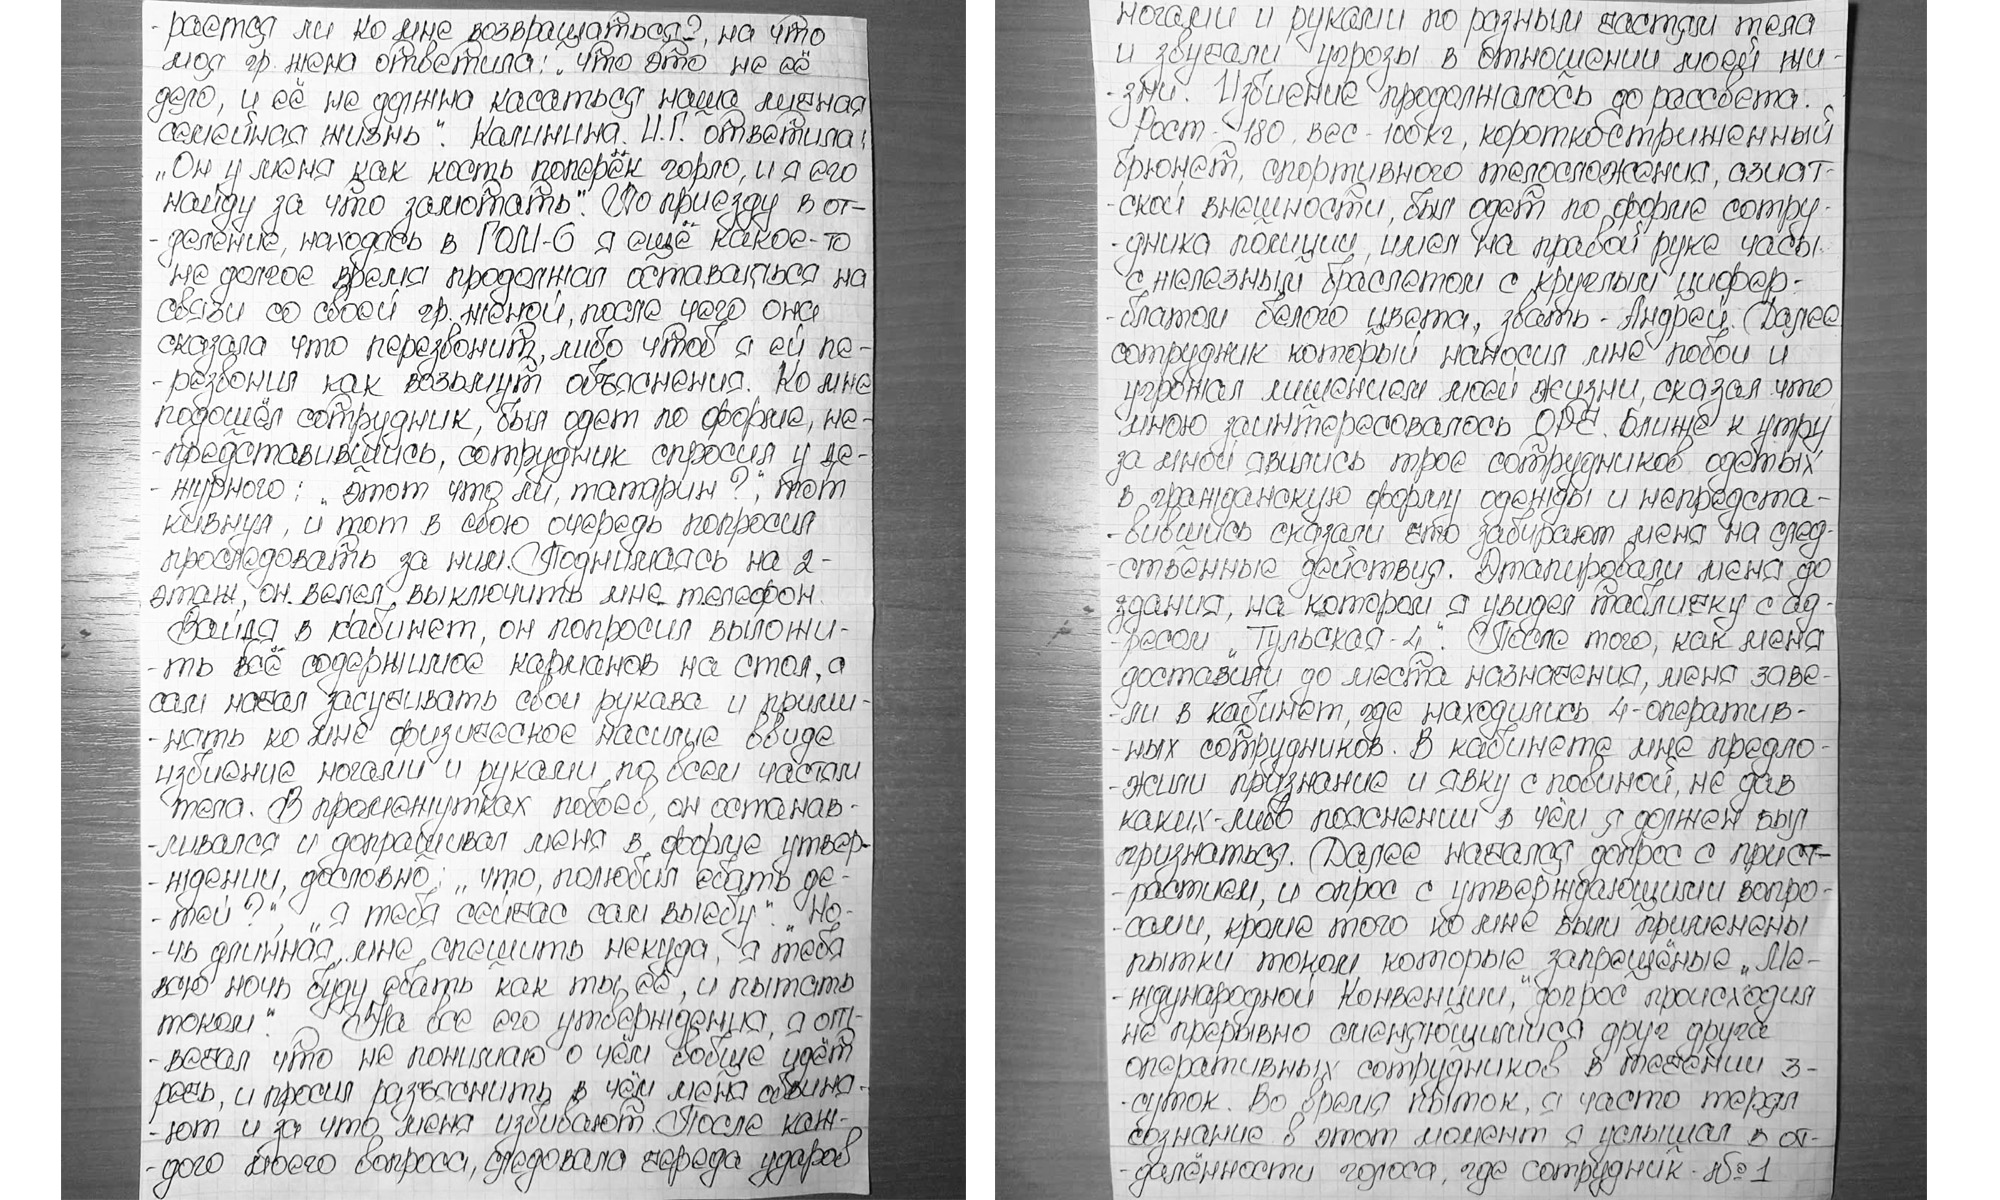 -рается ли ко мне возвращаться?, на что
моя гр. жена ответила: „что это не её
дело, и её не должна касаться наша личная
семейная жизнь“. Калинина. И.Г. ответила:
„Он у меня как кость поперёк горло, и я его
найду за что замотать“. По приезду в от-
-деление, находясь в ГОМ-6 я ещё какое-то
не долгое время продолжал оставаться на
связи со своей гр. женой, после чего она
сказала что перезвонит, либо чтоб я ей пе-
-резвонил как возьмут объяснения. Ко мне
подошёл сотрудник, был одет по форме, не-
-представившись, сотрудник спросил у де-
-журного: „этот что ли, татарин?“, тот
кивнул, и тот в свою очередь попросил
проследовать за ним. Поднимаясь на 2-
этаж, он велел выключить мне телефон.
Войдя в кабинет, он попросил выложи-
-ть всё содержимое карманов на стол, а
сам начал засучивать свои рукава и приме-
-нять ко мне физическое насилие ввиде
избиение ногами и руками по всем частям
тела. В промежутках побоев, он останав-
-ливался и допрашивал меня в форме утвер-
-ждении, дословно: „что, полюбил ебать де-
-тей?“, „я тебя сейчас сам выебу“. „Но-
-чь длинная, мне спешить некуда, я тебя
всю ночь буду ебать как ты её, и пытать
током“. На все его утверждения, я от-
-вечал что не понимаю о чём вобще идёт
речь, и просил разъяснить в чём меня обвиня-
-ют и за что меня избивают. После каж-
-дого моего вопроса, следовала череда ударов
ногами и руками по разным частям тела
и звучали угрозы в отношении моей жи-
-зни. Избиение продолжалось до рассвета.
Рост - 180, вес - 100кг, короткостриженный
брюнет, спортивного телосложения, азиат-
-ской внешности, был одет по форме сотру-
-дника полиции, имел на правой руке часы
с железный браслетом с круглым цифер-
-блатом белого цвета, звать - Андрей. Далее
сотрудник который наносил мне побои и
угрожал лишением моей жизни, сказал что
мною заинтересовалось ОРЕ. Ближе к утру
за мной явились трое сотрудников одетых
в гражданскую форму одежды и непредста-
-вившись сказали что забирают меня на след-
-ственные действия. Этапировали меня до
здания, на котором я увидел табличку с ад-
-ресом „Тульская-4“. После того, как меня
доставили до места назначения, меня заве-
-ли в кабинет, где находились 4-оператив-
-ных сотрудников. В кабинете мне предло-
-жили признание и явку с повиной, не дав
каких-либо пояснении в чём я должен был
признаться. Далее начался допрос с прист-
-растием, и опрос с утверждающими вопро-
-сами, кроме того ко мне были применены
пытки током, которые запрещёные „Ме-
-ждународной Конвенции,“ допрос происходил
не прерывно сменяющимися друг друга
оперативных сотрудников в течении 3-
-суток. Во время пыток, я часто терял
сознание в этот момент я услышал в от-
-далённости голоса, где сотрудник - №1